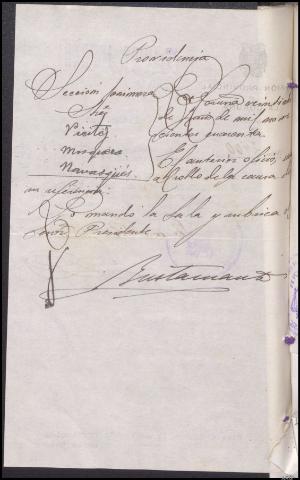 Providencia
Sección primera
Sres
Vieites
Mosquera
Navarqués
Coruña veintidos
de Mayo de mil nove
cientos cuarenta.
El anterior oficio,
al rollo de la causa de
su referencia.
Lo mandó la Sala y rubrica el
Señor Presidente
Bustamante